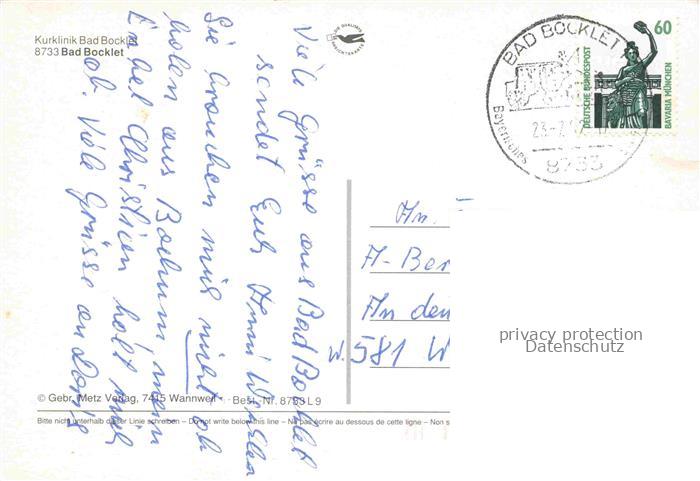 Kurklinik Bad Bocklet
8733 Bad Bocklet
DIE QUALITÄTS
ANSICHTSKARTE
BAD BOCKLET
8733
60
DEUTSCHE BUNDESPOST
BAVARIA MÜNCHEN
Viele Grüsse aus Bad Bocklet
sendet Euch Anni
Sie brauchen mich nicht ab
holen aus Bochum, mein
Enkel Christian holt mich
ab. Viele Grüsse an Doris
An.
A-Ber
An den
W. 581 W
privacy protection
Datenschutz
© Gebr. Metz Verlag, 7415 Wannweil · Best.-Nr. 8793 L 9
Bitte nicht unterhalb dieser Linie schreiben – Do not write below this line – Ne pas écrire au dessous de cette ligne – Non s